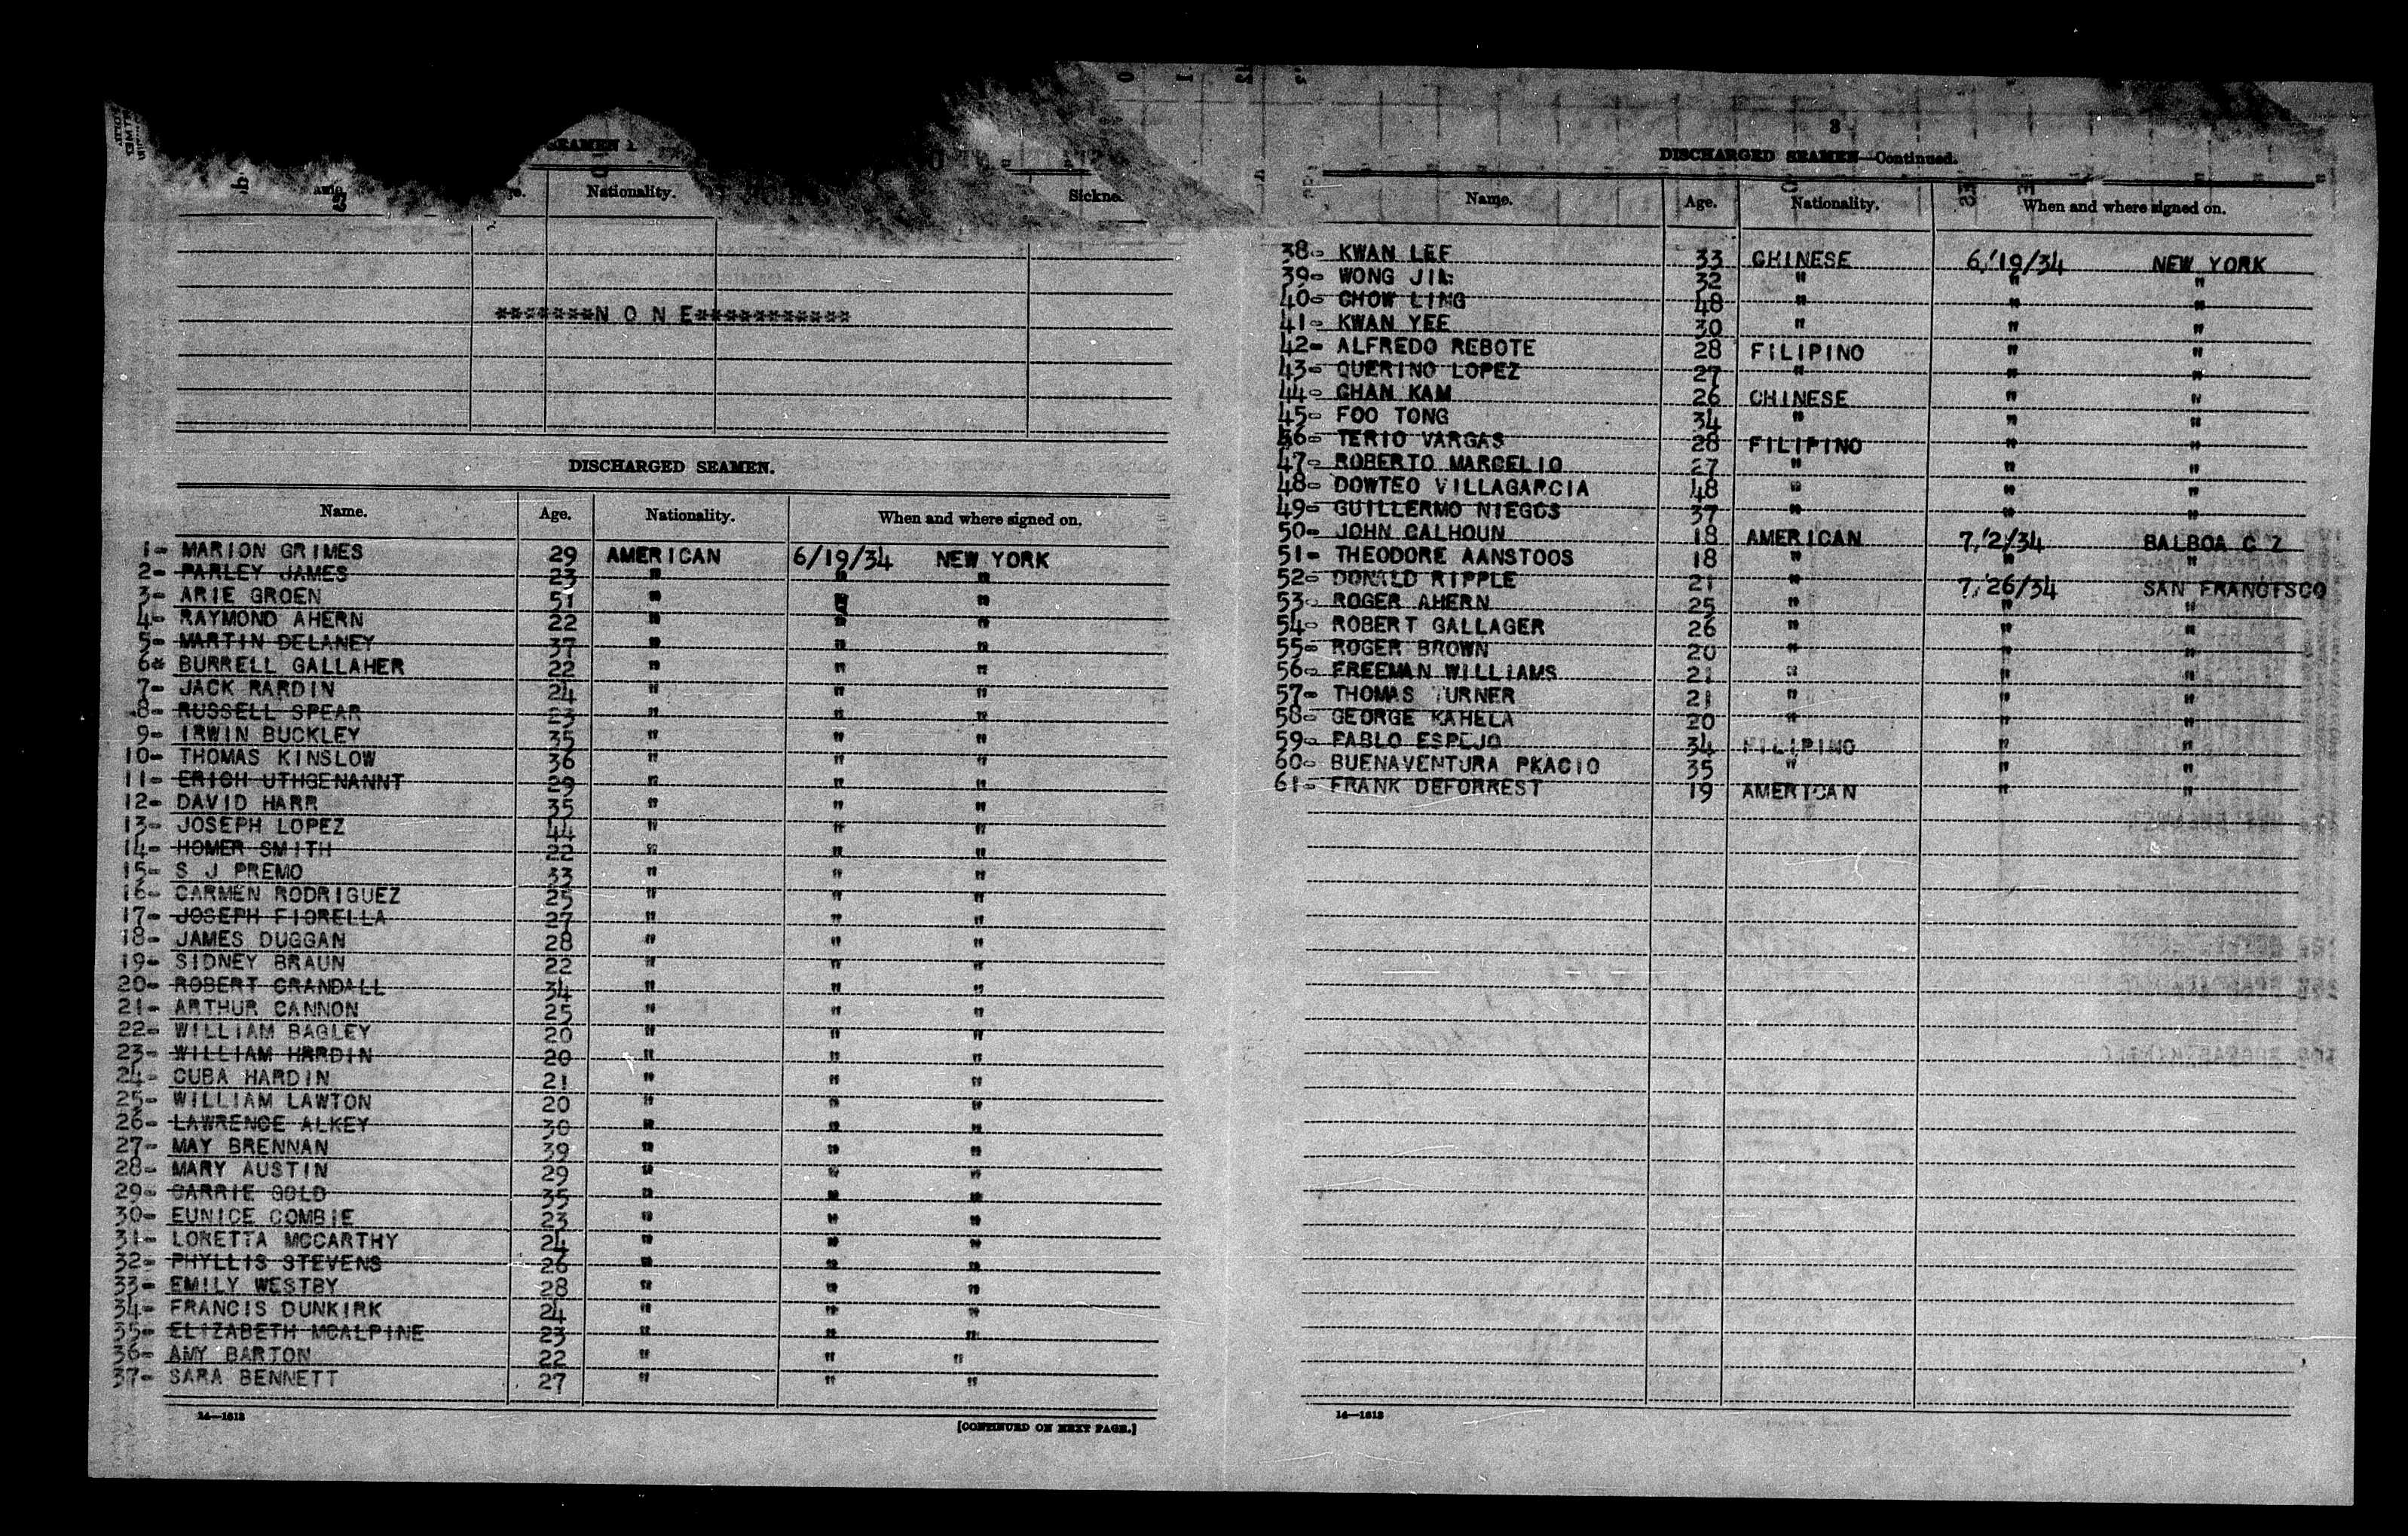 SEAMEN
Nationality.
*******N O N E***********
DISCHARGED SEAMEN.
Name. Age. Nationality. When and where signed on.
1- MARION GRIMES 29 AMERICAN 6/19/34 NEW YORK
2- PARLEY JAMES 23 " " "
3- ARIE GROEN 51 " " "
4- RAYMOND AHERN 22 " " "
5- MARTIN DELANEY 37 " " "
6* BURRELL GALLAHER 22 " " "
7- JACK RARDIN 24 " " "
8- RUSSELL SPEAR 23 " " "
9- IRWIN BUCKLEY 35 " " "
10- THOMAS KINSLOW 36 " " "
11- ERICH UTHGENANNT 29 " " "
12- DAVID HARR 35 " " "
13- JOSEPH LOPEZ 44 " " "
14- HOMER SMITH 22 " " "
15- S J PREMO 33 " " "
16- CARMEN RODRIGUEZ 25 " " "
17- JOSEPH FIORELLA 27 " " "
18- JAMES DUGGAN 28 " " "
19- SIDNEY BRAUN 22 " " "
20- ROBERT CRANDALL 34 " " "
21- ARTHUR CANNON 25 " " "
22- WILLIAM BAGLEY 20 " " "
23- WILLIAM HARDIN 20 " " "
24- CUBA HARDIN 21 " " "
25- WILLIAM LAWTON 20 " " "
26- LAWRENCE ALKEY 30 " " "
27- MAY BRENNAN 39 " " "
28- MARY AUSTIN 29 " " "
29- CARRIE GOLD 35 " " "
30- EUNICE COMBIE 23 " " "
31- LORETTA MCCARTHY 24 " " "
32- PHYLLIS STEVENS 26 " " "
33- EMILY WESTBY 28 " " "
34- FRANCIS DUNKIRK 24 " " "
35- ELIZABETH MCALPINE 23 " " "
36- AMY BARTON 22 " " "
37- SARA BENNETT 27 " " "
14—1613
[CONTINUED ON NEXT PAGE.]
3
DISCHARGED SEAMEN—Continued.
Name. Age. Nationality. When and where signed on.
38- KWAN LEE 33 CHINESE 6/19/34 NEW YORK
39- WONG JIL 32 " " "
40- CHOW LING 48 " " "
41- KWAN YEE 30 " " "
42- ALFREDO REBOTE 28 FILIPINO " "
43- QUERINO LOPEZ 27 " " "
44- CHAN KAM 26 CHINESE " "
45- FOO TONG 34 " " "
46- TERIO VARGAS 28 FILIPINO " "
47- ROBERTO MARCELIO 27 " " "
48- DOWTEO VILLAGARCIA 48 " " "
49- GUILLERMO NIEGOS 37 " " "
50- JOHN CALHOUN 18 AMERICAN 7/2/34 BALBOA C Z
51- THEODORE AANSTOOS 18 " " "
52- DONALD RIPPLE 21 " 7/26/34 SAN FRANCISCO
53- ROGER AHERN 25 " " "
54- ROBERT GALLAGER 26 " " "
55- ROGER BROWN 20 " " "
56- FREEMAN WILLIAMS 21 " " "
57- THOMAS TURNER 21 " " "
58- GEORGE KAHELA 20 " " "
59- PABLO ESPEJO 34 FILIPINO " "
60- BUENAVENTURA PKACIO 35 " " "
61- FRANK DEFORREST 19 AMERICAN " "
14—1613